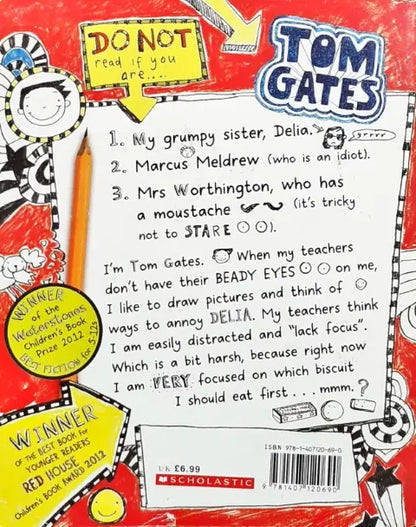 DO NOT
read if you
are....
TOM
GATES
1. My grumpy sister, Delia. grrrr
2. Marcus Meldrew (who is an idiot).
3. Mrs Worthington, who has
a moustache (it's tricky
not to STARE).
I'm Tom Gates. When my teachers
don't have their BEADY EYES on me,
I like to draw pictures and think of
ways to annoy DELIA. My teachers think
I am easily distracted and "lack focus".
Which is a bit harsh, because right now
I am VERY focused on which biscuit
I should eat first... mmm. ?
WINNER
of the
Waterstones
Children's Book
Prize 2012
BEST FICTION for 5-12s
WINNER
OF THE BEST BOOK for
YOUNGER READERS
RED HOUSE
Children's BOOK AWARD 2012
UK £6.99
SCHOLASTIC
ISBN 978-1-407120-69-0
9 781407 120690